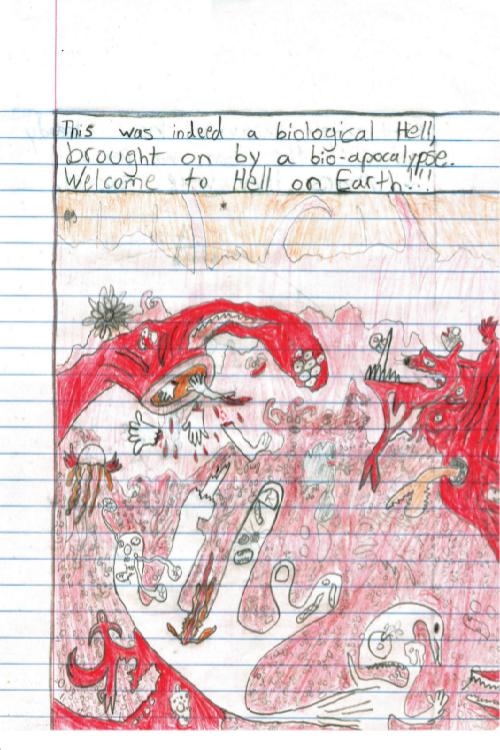 This was indeed a biological Hell,
brought on by a bio-apocalypse.
Welcome to Hell on Earth!!!